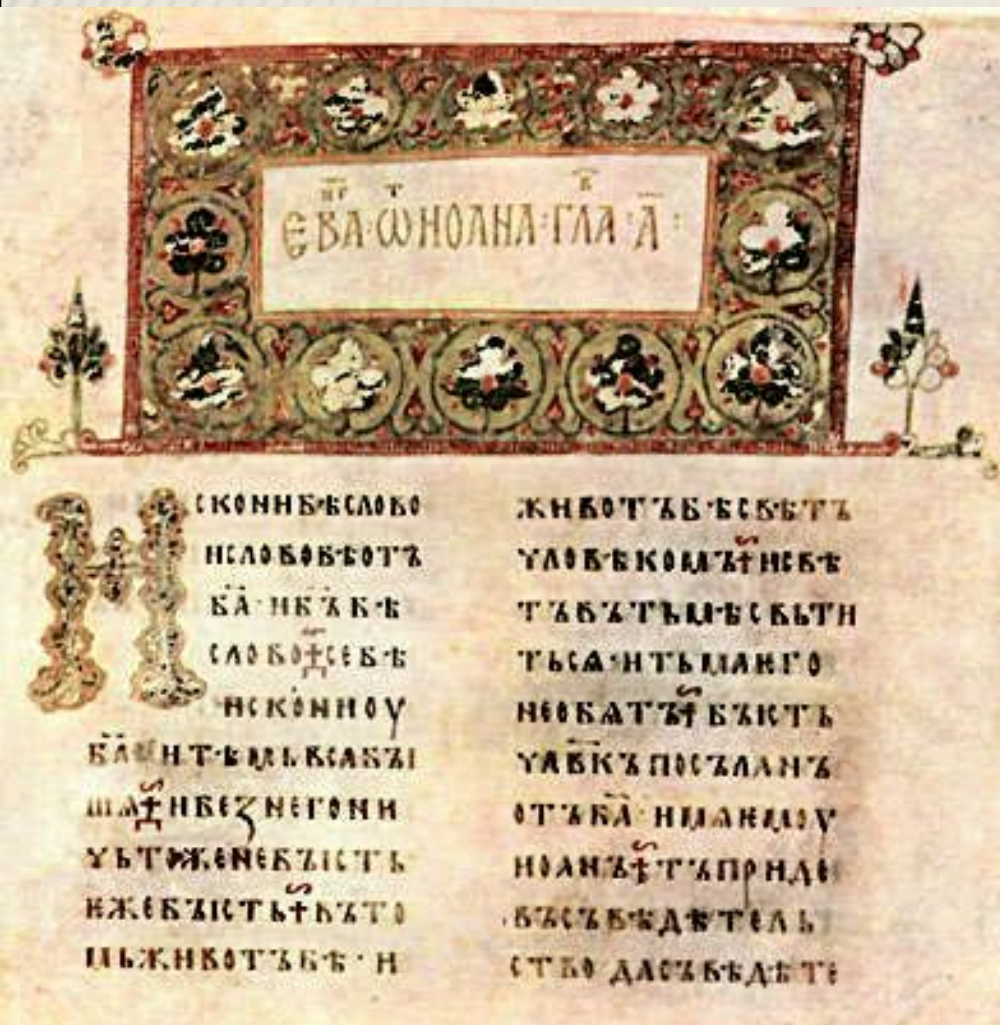 ЕВА҃НГ·ѾИОАНА·ГЛАВ҃·А҃:
ИСКОНИБѢСЛОВО
ИСЛОВОБѢОТЪ
БА҃·ИБЪ҃БѢ
СЛОВО☦СЕБѢ
ИСКОНИОУ
БА҃·ИТѢМЬВСАБЪІ
ШѦ☦ИБЕЗНЕГОНИ
ЧЬТОЖЕНЕБЪІСТЬ
ИЖЕБЪІСТЬ☦ВЪТО
МЬЖИВОТЪБѢ·И
ЖИВОТЪБѢСВѢТЪ
ЧЛОВѢКОМЪ☦ИСВѢ
ТЪВЪТЬМѢСВЬТИ
ТЬСѦ·ИТЬМАѤГО
НЕОБѦТЪ☦БЪІСТЬ
ЧЛВ҃КЪПОСЪЛАНЪ
ОТЪБА҃·ИМѦѤМОУ
ИОАНЪ☦ТЪПРИДЕ
ВЪСЪВѢДѢТЕЛЬ
СТВО·ДАСЪВѢДѢТЕ